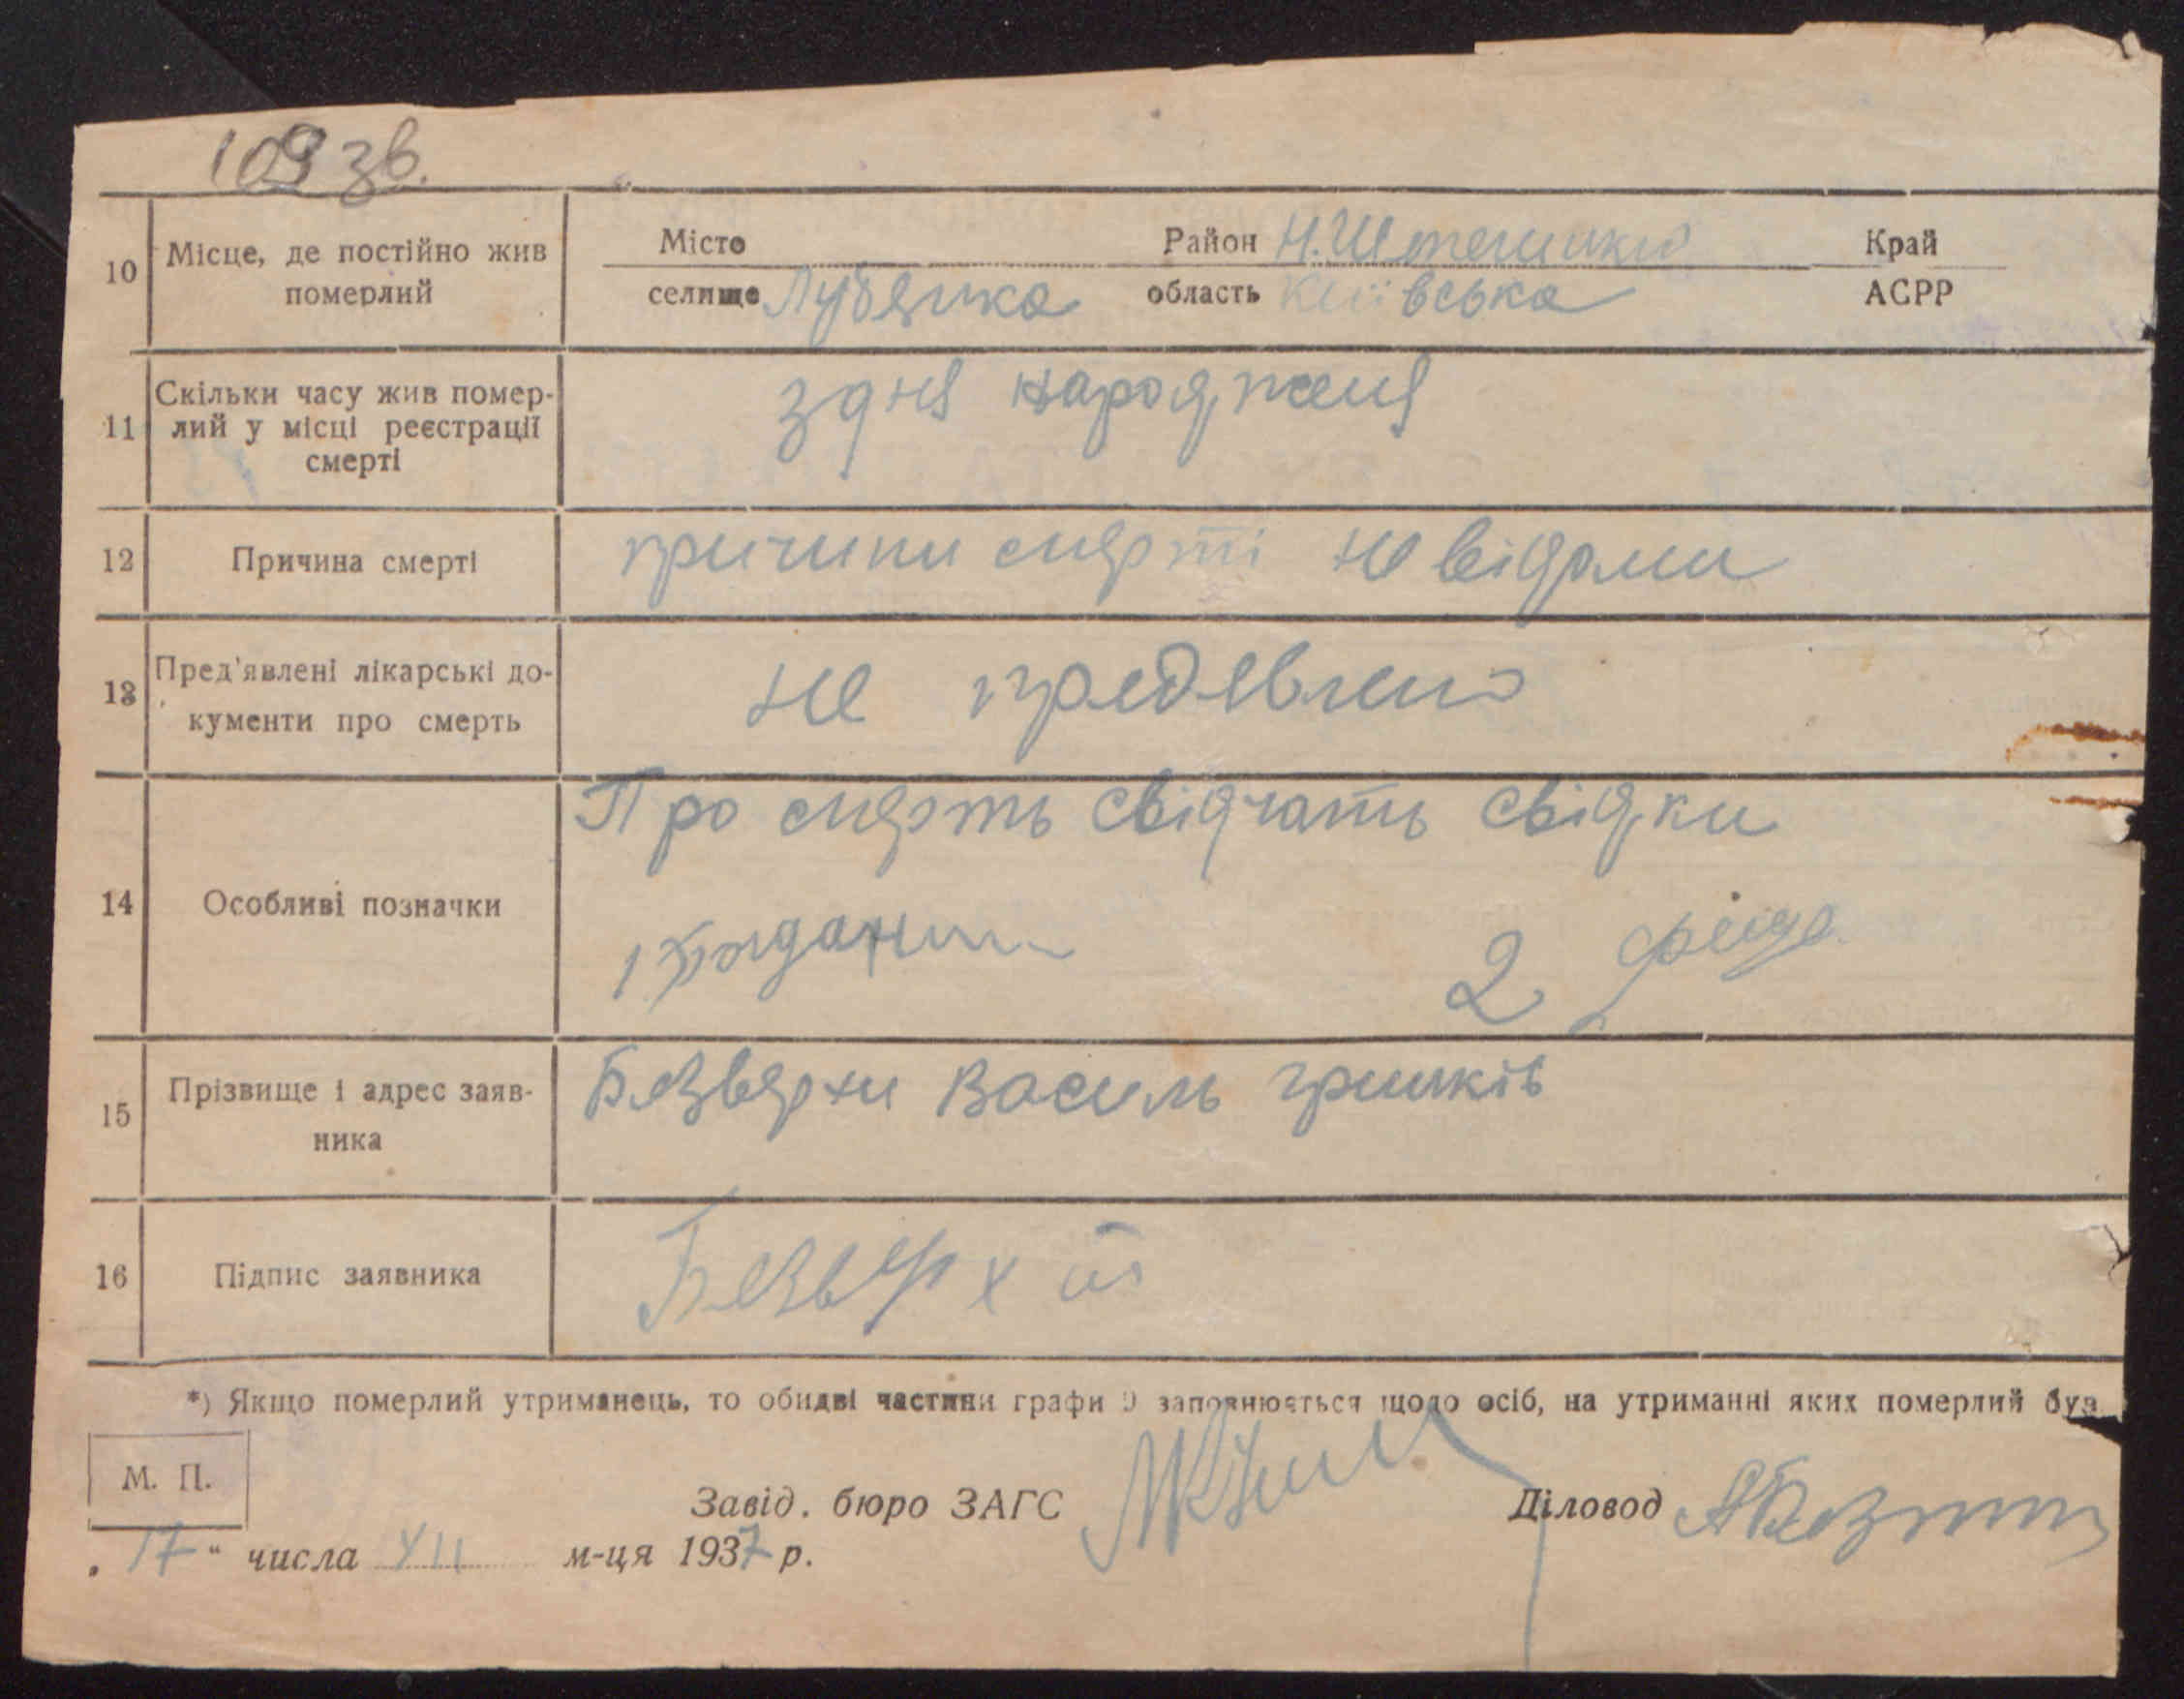 109 зв.
10 Місце, де постійно жив померлий
Місто Район Край
селище Лубянка область Київська АСРР
11 Скільки часу жив помер-
лий у місці реєстрації
смерті
з дня народженя
12 Причина смерті причини смерті не відоми
13 Пред'явлені лікарські до-
кументи про смерть
не предявлено
14 Особливі позначки
Про смерть свідчать свідки
1 2
15 Прізвище і адрес заяв-
ника
Безверхи Василь
16 Підпис заявника Безверхий
*) Якщо померлий утриманець, то обидві частини графи 9 заповнюється щодо осіб, на утриманні яких померлий був
М. П.
Завід. бюро ЗАГС Діловод
„17" числа VII м-ця 1937 р.